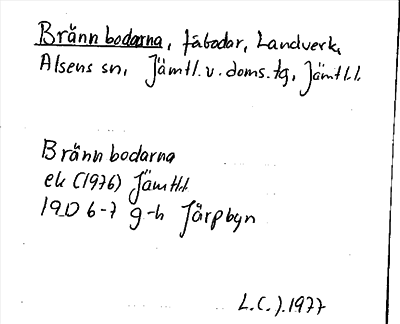 Brännbodarna, fäbodar, Landverk,
Alsens sn, Jämtl. v. doms. tg, Jämtl.l.
Brännbodarna
ek (1976) Jämtl.l
19D 6-7 g-h Järpbyn
L.C.J. 1977